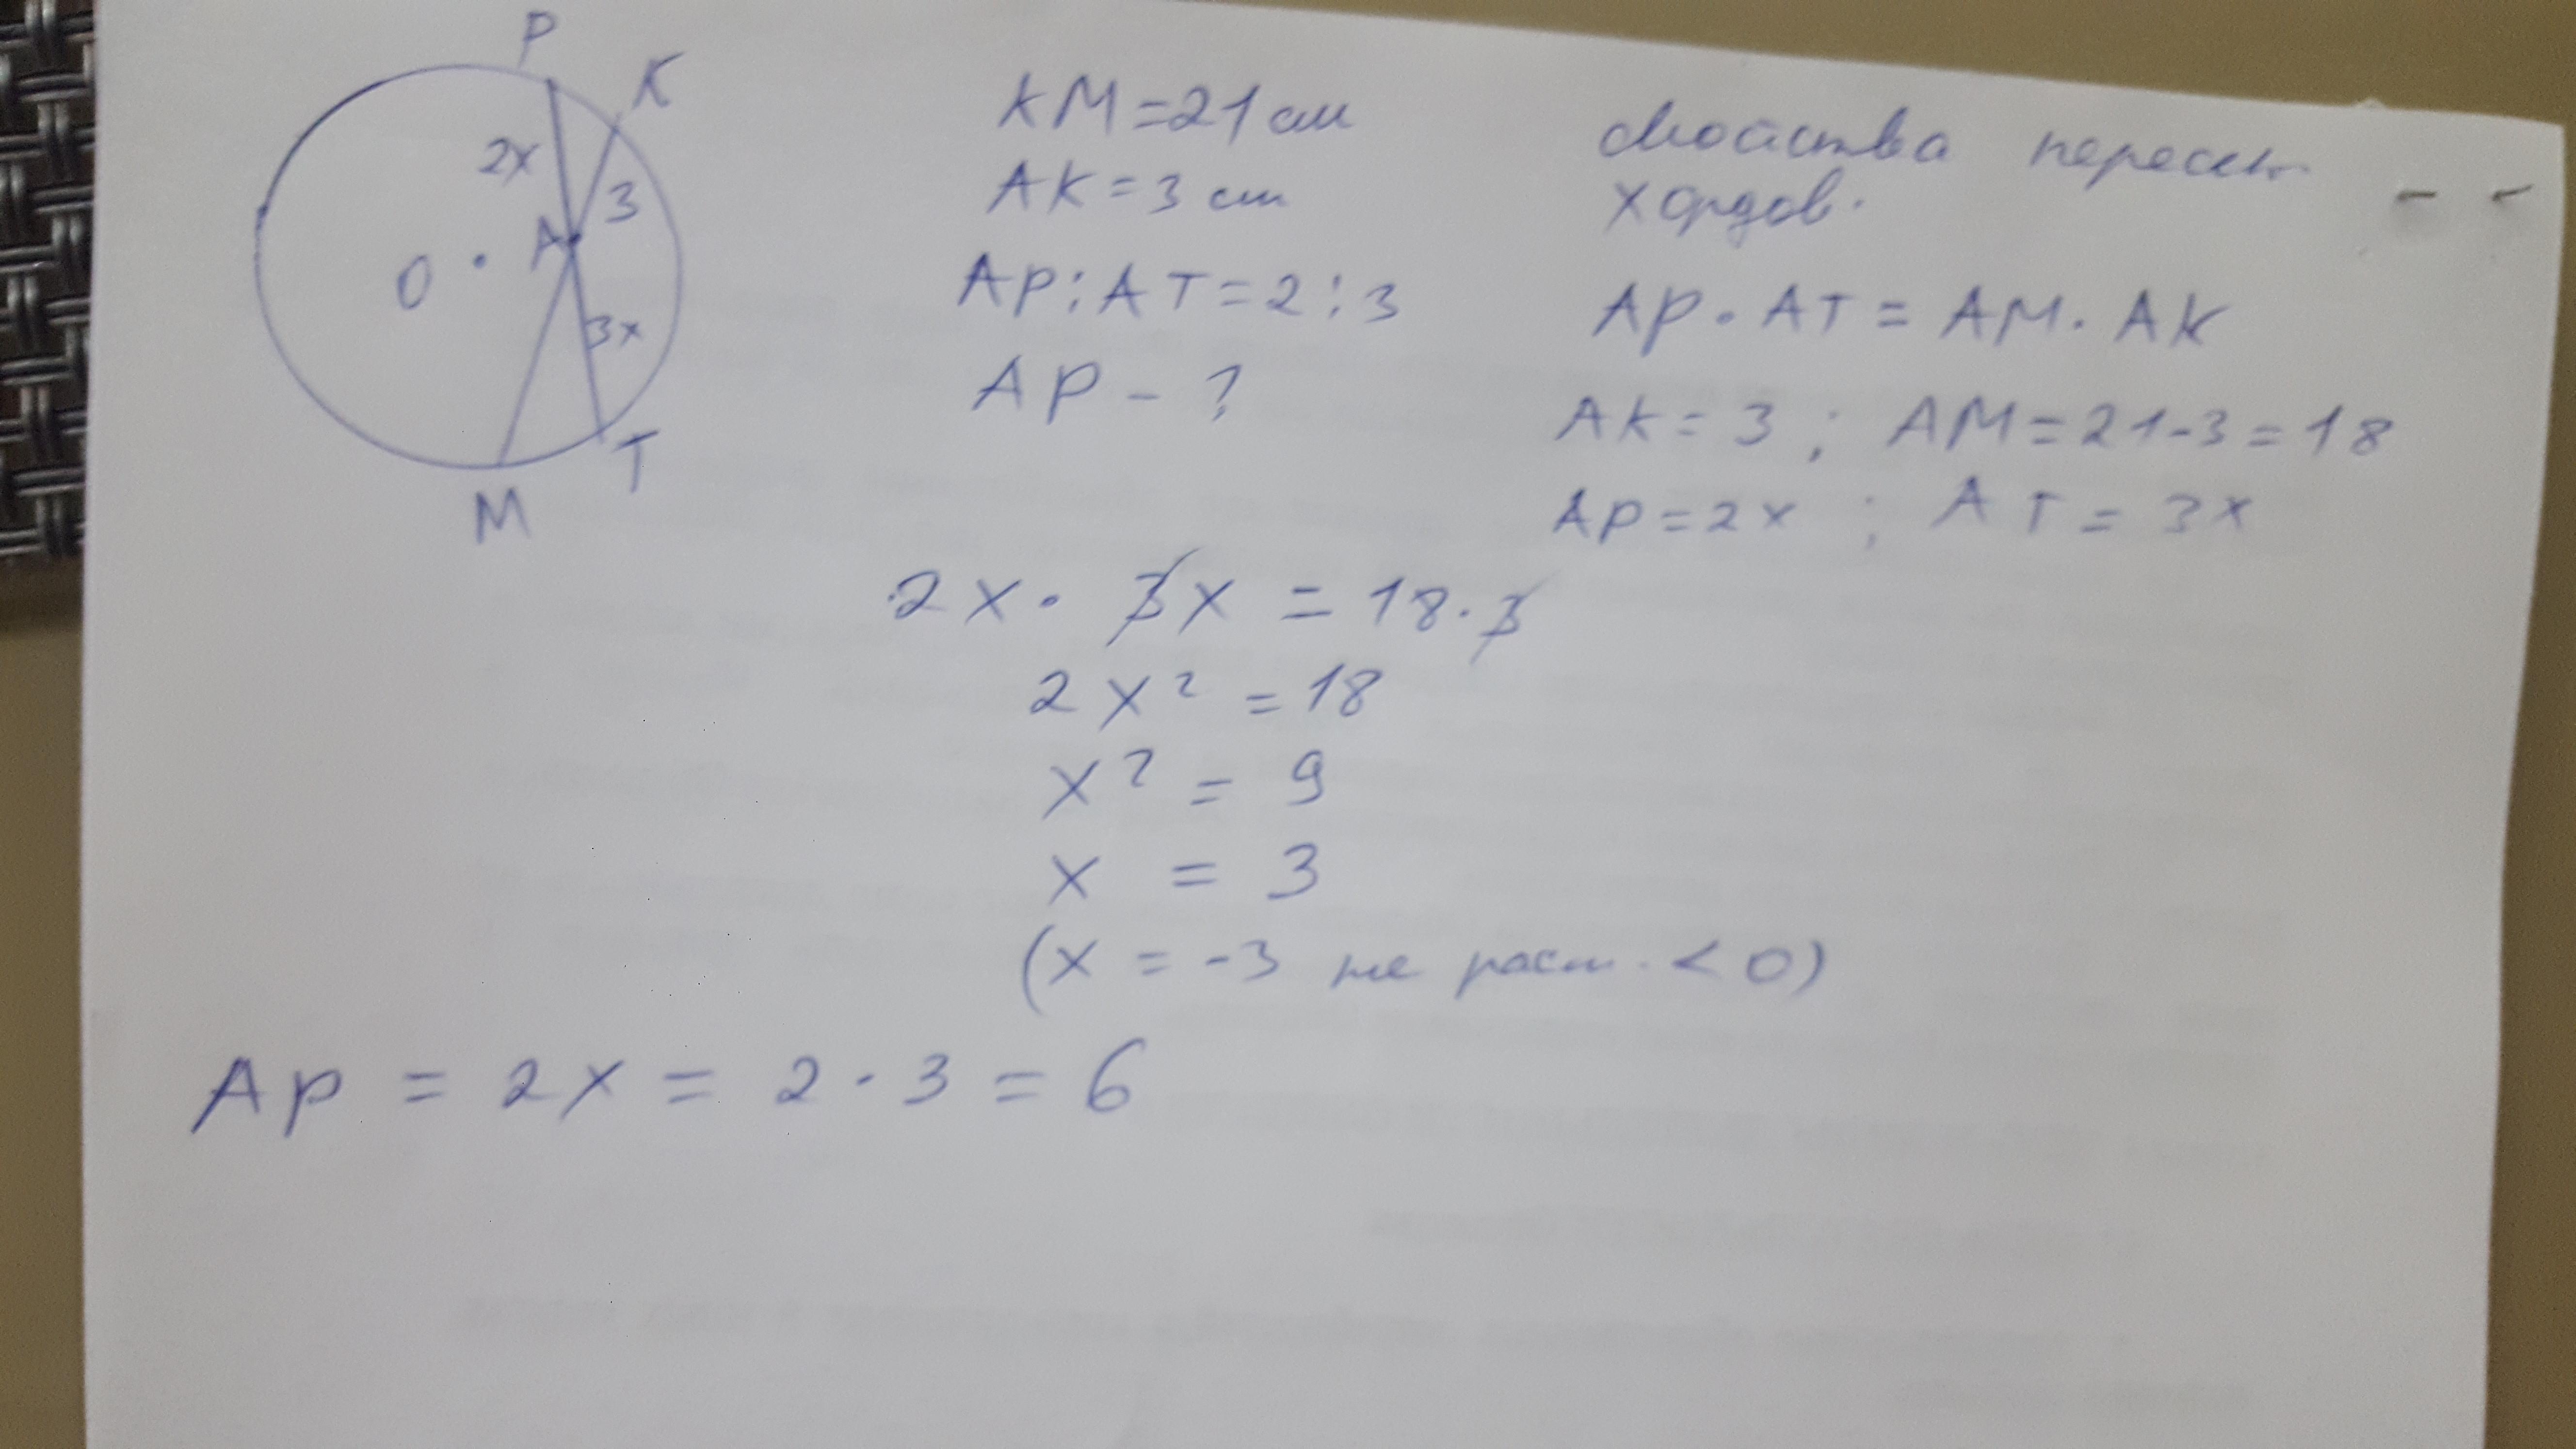 P
K
2x
3
A
O
3x
T
M
KM=21 см
AK=3 см
AP:AT=2:3
AP-?
свойства пересеч.
хордов.
AP·AT=AM·AK
AK=3; AM=21-3=18
AP=2x; AT=3x
2x·3x=18·3
2x²=18
x²=9
x=3
(x=-3 не расм. <0)
AP=2x=2·3=6